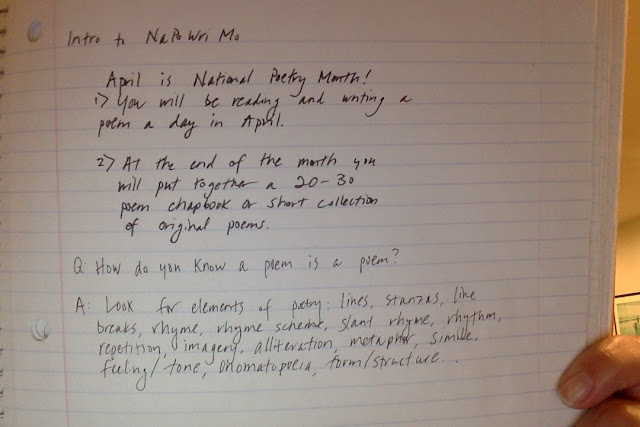 Intro to NaPoWriMo
April is National Poetry Month!
1) You will be reading and writing a
poem a day in April.
2) At the end of the month you
will put together a 20-30
poem chapbook or short collection
of original poems.
Q: How do you know a poem is a poem?
A: Look for elements of poetry: lines, stanzas, line
breaks, rhyme, rhyme scheme, slant rhyme, rhythm,
repetition, imagery, alliteration, metaphor, simile,
feeling/tone, onomatopoeia, form/structure...